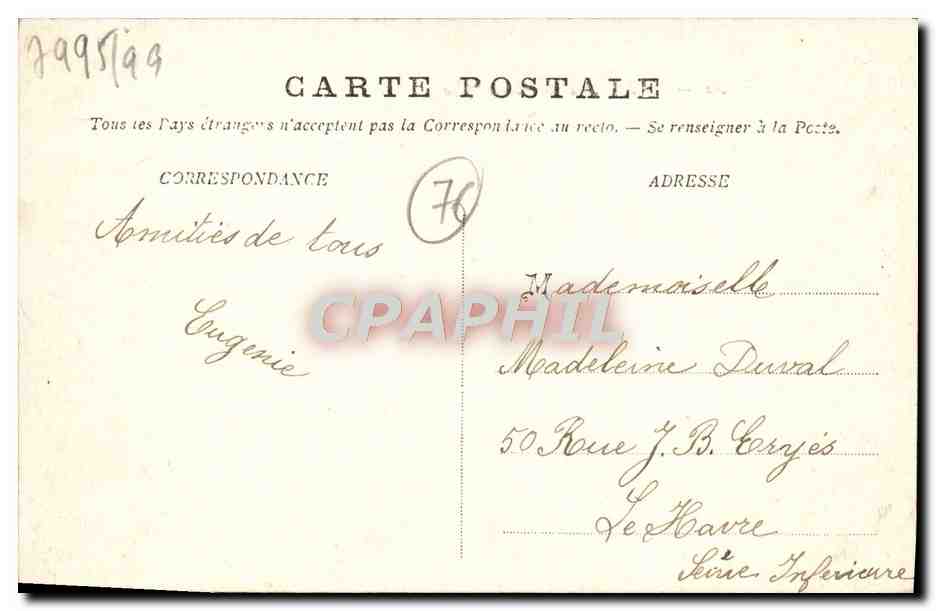 7995/99
CARTE POSTALE
Tous les Pays étrangers n'acceptent pas la Correspondance au recto. — Se renseigner à la Poste.
CORRESPONDANCE
76
ADRESSE
Amitiés de tous
Eugenie
CPAPHIL
Mademoiselle
Madeleine Duval
50 Rue J. B. Eryés
Le Havre
Seine Inferieure